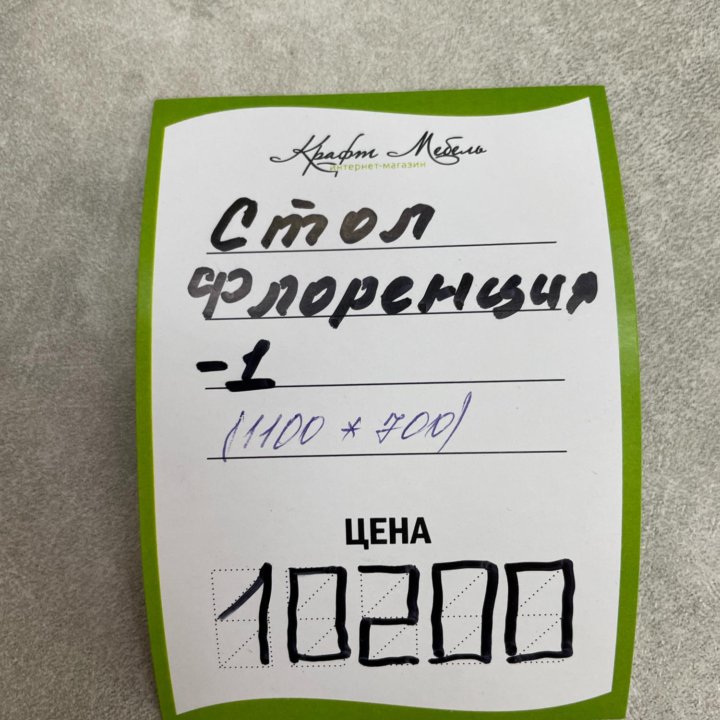 Крафт Мебель
интернет-магазин
Стол
Флоренция
-1
(1100 * 700)
ЦЕНА
10200